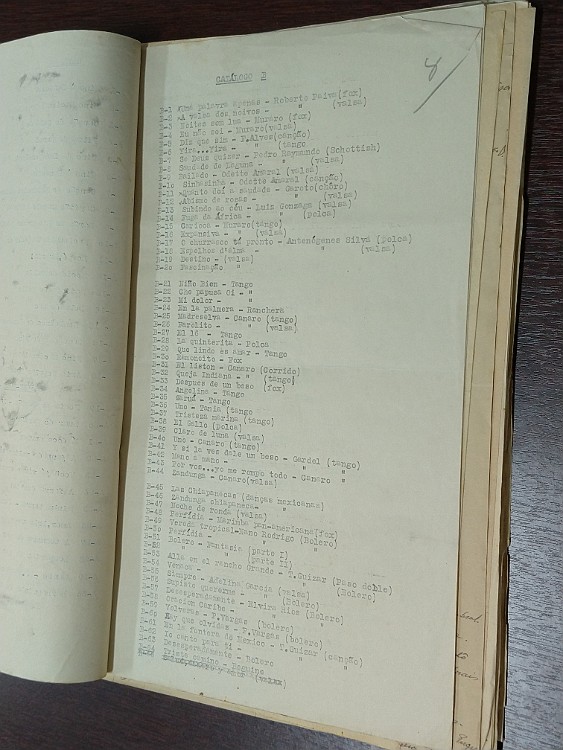 8
CATÁLOGO B
B-1 Uma palavra apenas - Roberto Paiva(fox)
B-2 A valsa dos noivos - " (valsa)
B-3 Noites sem lua - Muraro (fox)
B-4 Eu não sei - Muraro(valsa)
B-5 Diz que sim - F.Alves(canção)
B-6 Vira...Yira - " (tango
B-7 Se Deus quizer - Pedro Raymundo (Schottish)
B-8 Saudade de Laguna - " (valsa)
B-9 Bailado - Odette Amaral (valsa)
B-10 Sinhasinha - Odette Amaral (canção)
B-11 Quanto doi a saudade - Garoto(chôro)
B-12 Abismo de rosas - " (valsa)
B-13 Subindo ao céu - Luiz Gonzaga (valsa)
B-14 Fuga da África - " (polca)
B-15 Carioca - Muraro(tango)
B-16 Expansiva - " (valsa)
B-17 O churrasco tá pronto - Antenógenes Silva (polca)
B-18 Espelhos d'alma - " (valsa)
B-19 Destino - (valsa)
B-20 Fascinação "
B-21 Niño Bien - Tango
B-22 Che papusa Oi - "
B-23 Mi dolor - "
B-24 En la palmera - Ranchera
B-25 Madreselva - Canaro (tango)
B-26 Farolito - " (valsa)
B-27 El 14 - Tango
B-28 La quinterita - Polca
B-29 Que lindo es amar - Tango
B-30 Ramoncito - Fox
B-31 El liston - Canaro (Corrido)
B-32 Queja Indiana - " (tango)
B-33 Despues de un beso (fox)
B-34 Angelina - Tango
B-35 Maruá - Tango
B-36 Uno - Tania (tango)
B-37 Tristeza marina (tango)
B-38 El Gallo (polca)
B-39 Claro de luna (valsa)
B-40 Uno - Canaro (tango)
B-41 Y si la vez dale un beso - Gardel (tango)
B-42 Mano a mano - " "
B-43 Por vos...yo me rompo todo - Canaro "
B-44 Zandunga - Canaro(valsa)
B-45 Las Chiapanecas (danças mexicanas)
B-46 Zandunga chiapaneca- "
B-47 Noche de ronda (valsa)
B-48 Perfídia - Marimba pan-americana(fox)
B-49 Vereda tropical-Nano Rodrigo (Bolero)
B-50 Perfídia - " "
B-51 Bolero - Fantasia (parte I)
B-52 " " (parte II)
B-53 Allá en el rancho Grande - T.Guizar (Paso doble)
B-54 Vereda - " (Bolero)
B-55 Siempre - Adelina Garcia (valsa)
B-56 Supiste quererme - " (Bolero)
B-57 Desesperadamente - Elvira Rios (Bolero)
B-58 Oración Caribe - "
B-59 Volveras - P.Vargas (bolero)
B-60 Hoy que olvidas - P.Vargas (bolero)
B-61 En la frontera de Mexico - T.Guizar (canção)
B-62 Io canto para ti - " "
B-63 Desesperadamente - Bolero